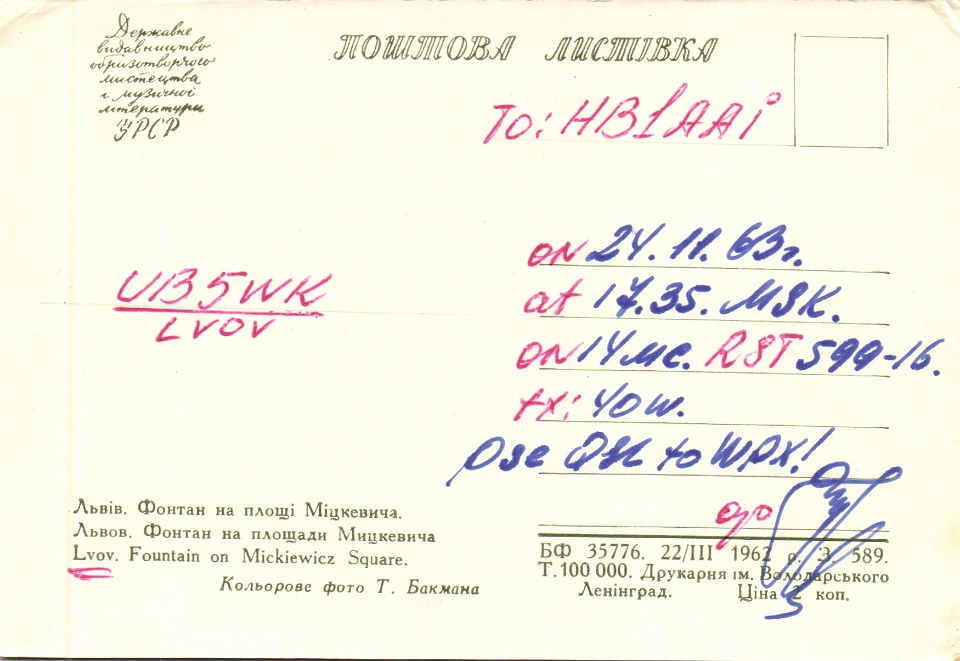 Державне
видавництво
образотворчого
мистецтва
і музичної
літератури
УРСР
ПОШТОВА ЛИСТІВКА
To: HB1AAi
UB5WK
LVOV
on 24.11.63г.
at 17.35. MSK.
on 14 mc. RST 599-16.
tx: 40w.
Pse QSL to WPX!
op
Львів. Фонтан на площі Міцкевича.
Львов. Фонтан на площади Мицкевича
Lvov. Fountain on Mickiewicz Square.
Кольорове фото Т. Бакмана
БФ 35776. 22/III 1962 р. З. 589.
Т. 100 000. Друкарня ім. Володарського
Ленінград. Ціна 2 коп.